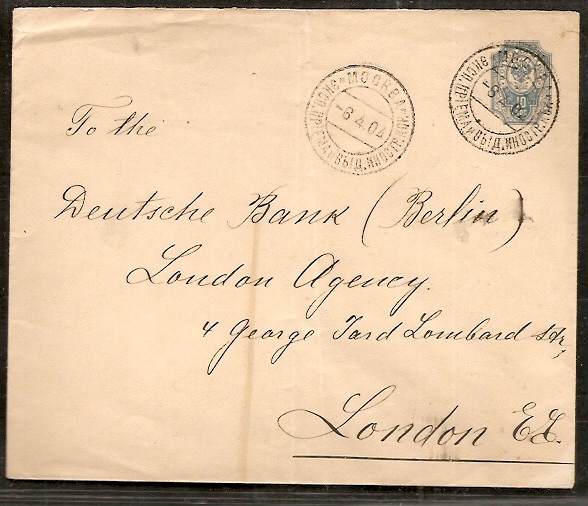 МОСКВА
ЭКСП. ПРІЕМА И ВЫД. ИНОСТР. КОР.
-8.4.04
МОСКВА
ЭКСП. ПРІЕМА И ВЫД. ИНОСТР. КОР.
8.4.04
10
To the
Deutsche Bank (Berlin)
London Agency.
4 George Yard Lombard Str,
London E.C.